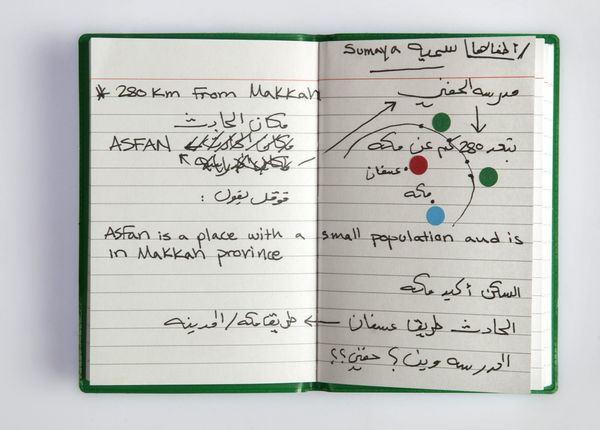 * 280 Km From Makkah
مكان الحادث
ASFAN
قوقل يقول :
ASFan is a place with a small population and is
in Makkah province
Sumaya سمية /أطفالها
مدرسه الحفني
تبعد 280 كم عن مكه
عسفان
مكه
السكن أكيد مكه
الحادث طريق عسفان ← طريق مكه/المدينه
المدرسه وين؟ حفني؟؟